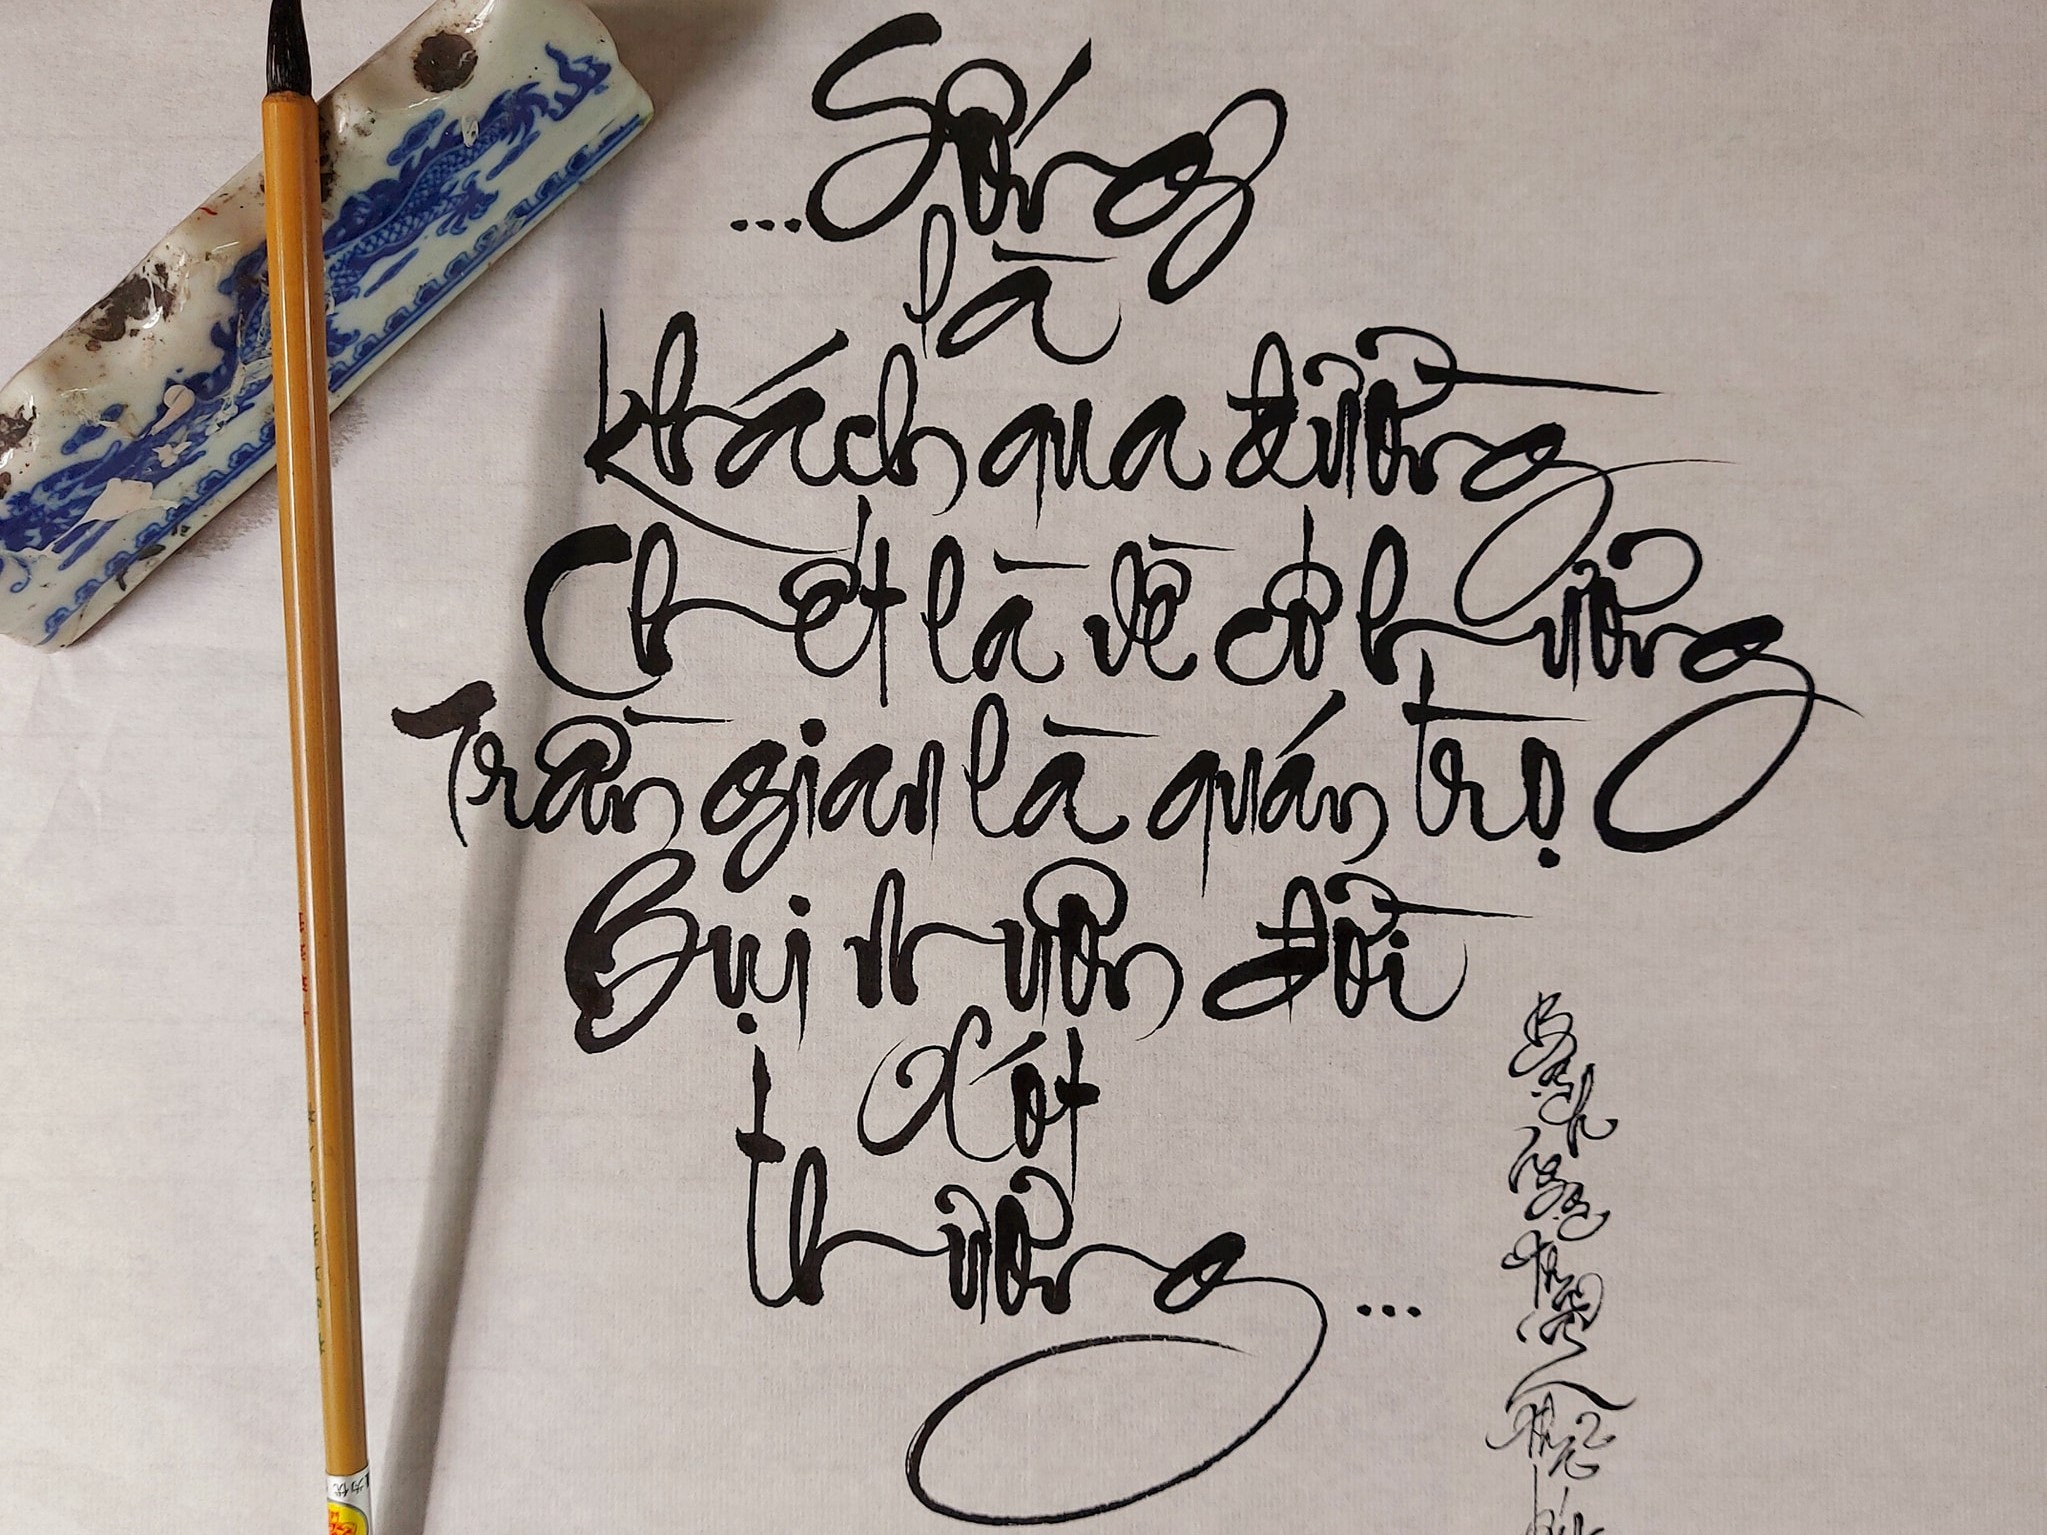 ...Sống
là
khách qua đường
Chết là về cố hương
Trần gian là quán trọ
Bụi nhuốn đời
Xót
thương...